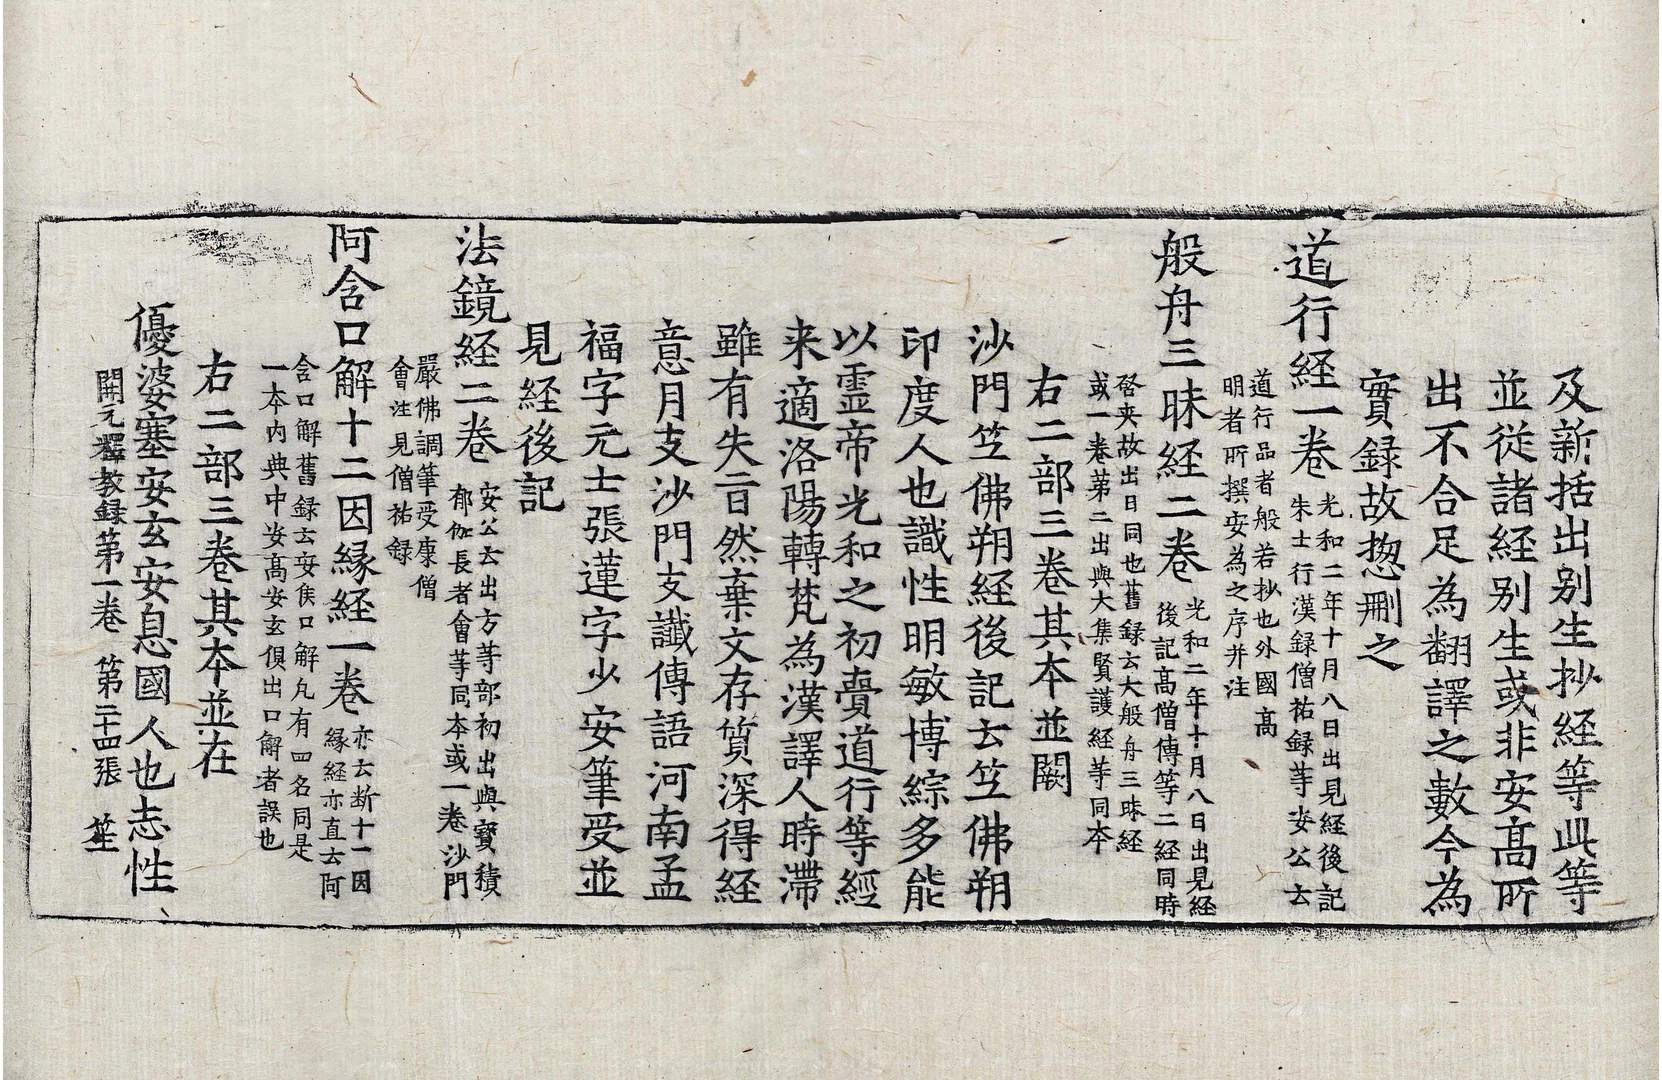 及新括出别生抄経等此等
並從諸経别生或非安髙所
出不合足為翻譯之數今為
實録故揔删之
道行経一卷
光和二年十月八日出見経後記
朱士行漢録僧祐録等安公云
道行品者般若抄也外國髙
明者所撰安為之序并注
般舟三昧経二卷
光和二年十月八日出見経
後記髙僧傳等二経同時
啓夾故出日同也舊録云大般舟三昧経
或一卷第二出與大集賢護経等同本
右二部三卷其本並闕
沙門笁佛朔経後記云笁佛朔
印度人也識性明敏博綜多能
以霊帝光和之初賷道行等經
来適洛陽轉梵為漢譯人時滯
雖有失㫖然棄文存質深得経
意月支沙門支讖傳語河南孟
福字元士張蓮字少安筆受並
見経後記
法鏡経二卷
安公云出方等部初出與寳積
郁伽長者會等同本或一卷沙門
嚴佛調筆受康僧
會注見僧祐録
阿含口解十二因縁経一卷
亦云断十二因
縁経亦直云阿
含口解舊録云安侯口解凢有四名同是
一本内典中安髙安玄俱出口解者誤也
右二部三卷其本並在
優婆塞安玄安息國人也志性
開元釋教録第一卷 第二十四張 笙